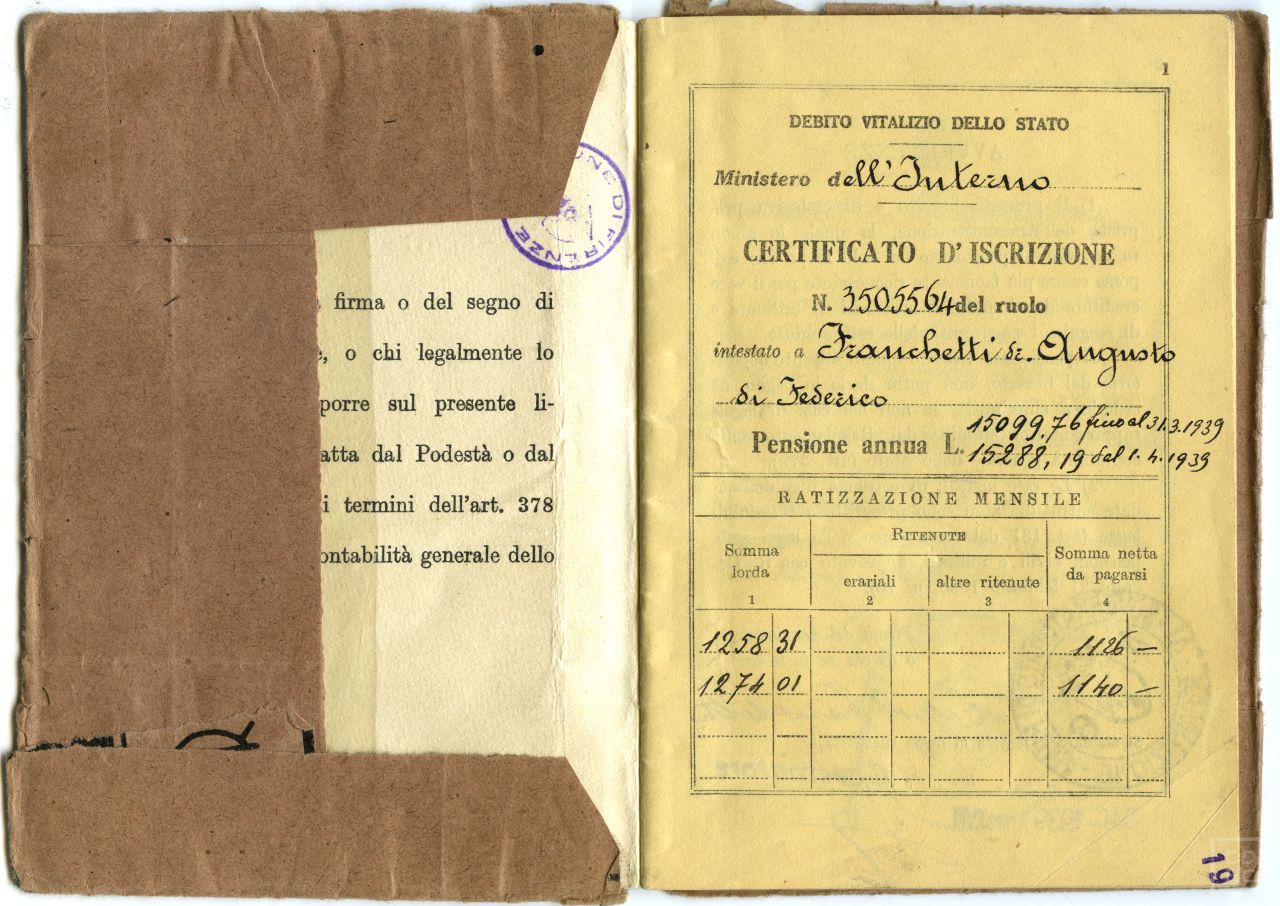 COMUNE DI FIRENZE
firma o del segno di
o chi legalmente lo
porre sul presente li-
atta dal Podestà o dal
i termini dell'art. 378
ontabilità generale dello
1
DEBITO VITALIZIO DELLO STATO
Ministero dell'Interno
CERTIFICATO D'ISCRIZIONE
N. 3505564 del ruolo
intestato a Franchetti dr. Augusto
di Federico
Pensione annua L. 15099,76 fino al 31.3.1939
15288,19 dal 1.4.1939
RATIZZAZIONE MENSILE
Somma lorda
RITENUTE
Somma netta da pagarsi
erariali
altre ritenute
1 2 3 4
1258 31 1126 —
1274 01 1140 —
19